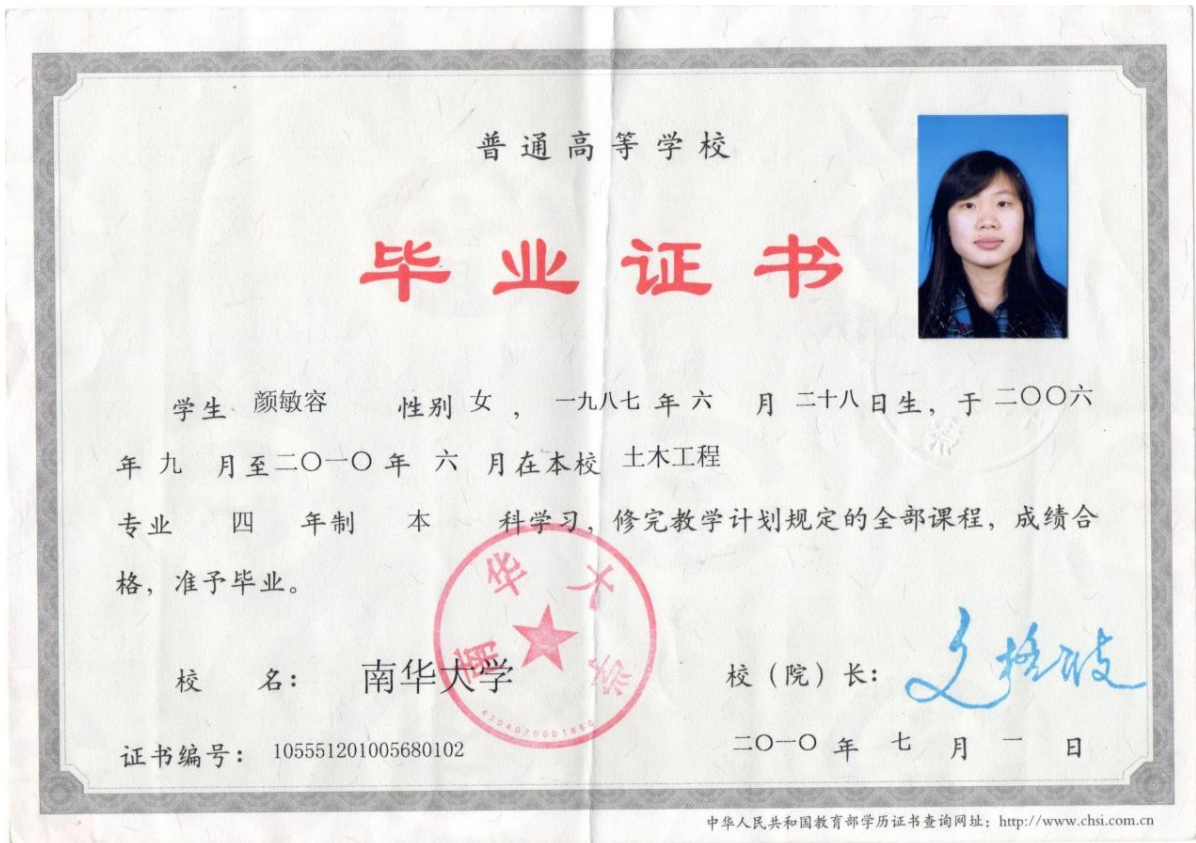 普通高等学校
毕业证书
学生 颜敏容 性别 女 ， 一九八七 年 六 月 二十八 日生，于 二〇〇六
年 九 月至 二〇一〇 年 六 月在本校 土木工程
专业 四 年制 本 科学习，修完教学计划规定的全部课程，成绩合
格，准予毕业。
南华大学
校 名： 南华大学 校（院）长：
证书编号： 105551201005680102 二〇一〇 年 七 月 一 日
中华人民共和国教育部学历证书查询网址：http://www.chsi.com.cn